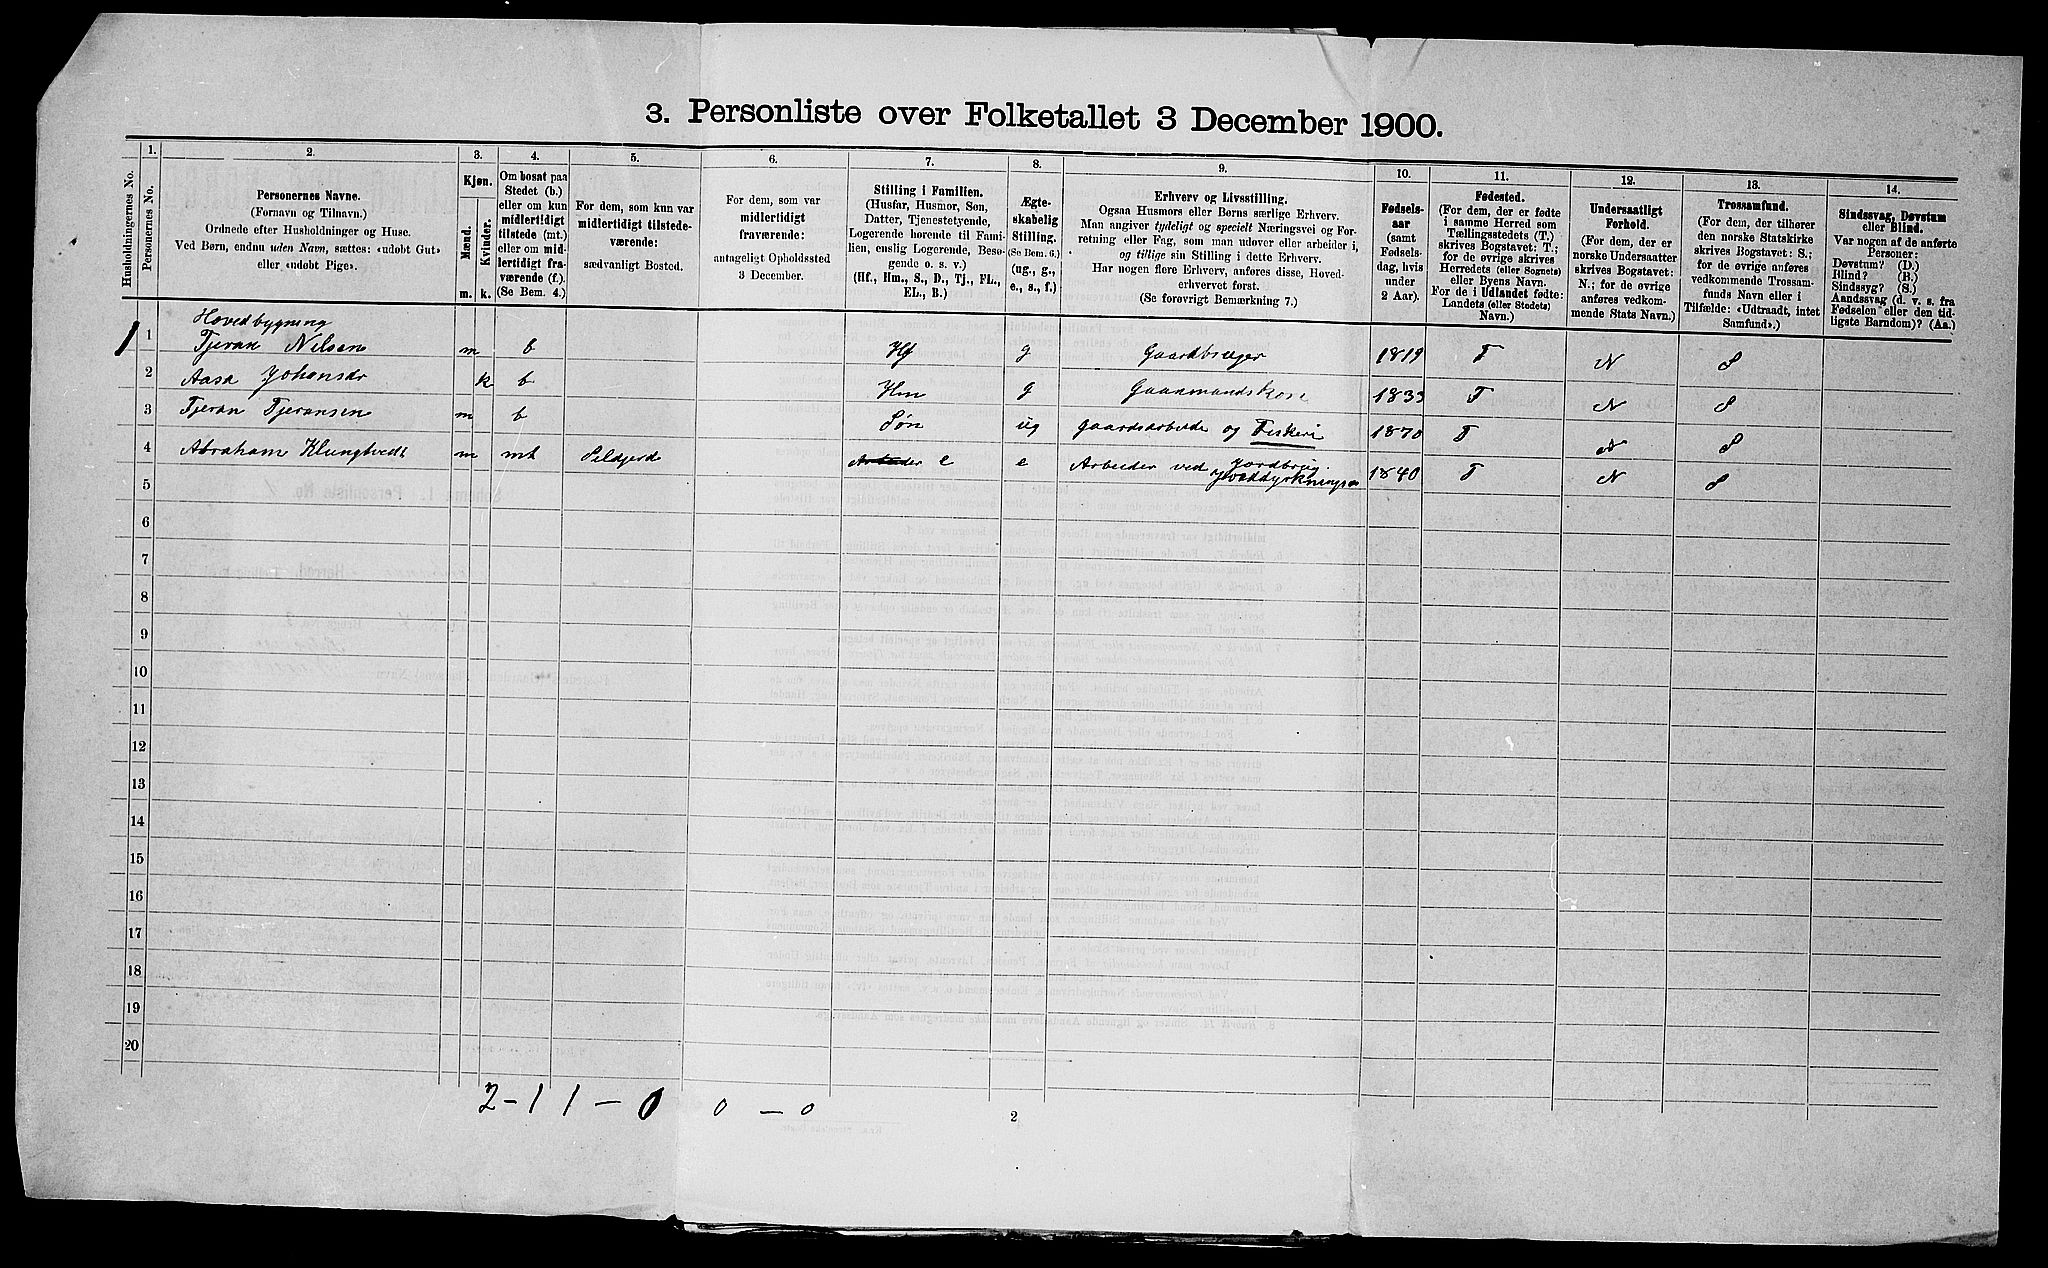 3. Personliste over Folketallet 3 December 1900.
Husholdningernes No.
1.
Personernes No.
2.
Personernes Navne.
(Fornavn og Tilnavn.)
Ordnede efter Husholdninger og Huse.
Ved Børn, endnu uden Navn, sættes: «udøbt Gut»
eller «udøbt Pige».
3.
Kjøn.
Mænd.
Kvinder.
m.
k.
4.
Om bosat paa
Stedet (b.)
eller om kun
midlertidigt
tilstede (mt.)
eller om mid-
lertidigt fra-
værende (f.).
(Se Bem. 4.)
5.
For dem, som kun var
midlertidigt tilstede-
værende:
sædvanligt Bosted.
6.
For dem, som var
midlertidigt
fraværende:
antageligt Opholdssted
3 December.
7.
Stilling i Familien.
(Husfar, Husmor, Søn,
Datter, Tjenestetyende,
Logerende hørende til Fami-
lien, enslig Logerende, Besø-
gende o. s. v.)
(Hf., Hm., S., D., Tj., FL.,
EL., B.)
8.
Ægte-
skabelig
Stilling.
(Se Bem. 6.)
(ug., g.,
e., s., f.)
9.
Erhverv og Livsstilling.
Ogsaa Husmors eller Børns særlige Erhverv.
Man angiver tydeligt og specielt Næringsvei og For-
retning eller Fag, som man udover eller arbeider i,
og tillige sin Stilling i dette Erhverv.
Har nogen flere Erhverv, anføres disse, Hoved-
erhvervet først.
(Se forøvrigt Bemærkning 7.)
10.
Fødsels-
aar
(samt
Fødsels-
dag, hvis
under
2 Aar).
11.
Fødested.
(For dem, der er fødte
i samme Herred som
Tællingsstedets (T.)
skrives Bogstavet: T.;
for de øvrige skrives
Herredets (eller Sognets)
eller Byens Navn.
For de i Udlandet fødte:
Landets (eller Stedets)
Navn.)
12.
Undersaatligt
Forhold.
(For dem, der er
norske Undersaatter
skrives Bogstavet:
N.; for de øvrige
anføres vedkom-
mende Stats Navn.)
13.
Trossamfund.
(For dem, der tilhører
den norske Statskirke
skrives Bogstavet: S.;
for de øvrige anføres
vedkommende Trossam-
funds Navn eller i
Tilfælde: «Udtraadt, intet
Samfund».)
14.
Sindssvag, Døvstum
eller Blind.
Var nogen af de anførte
Personer:
Døvstum? (D.)
Blind? (B.)
Sindssyg? (S.)
Aandssvag (d. v. s. fra
Fødselen eller den tid-
ligste Barndom)? (Aa.)
Hovedbygning
1 1 Tjeran Nilsen m b Hf g Gaardbruger 1819 T N S
2 Aasa Johansdr k b Hm g Gaarmandskone 1833 T N S
3 Tjeran Tjeransen m b Søn ug Gaardsarbeide og Fiskeri 1870 T N S
4 Abraham Klungtvedt m mt Sildjord Arbeider e e Arbeider ved Jordbrug. 1840 T N S
5
6
7
8
9
10
11
12
13
14
15
16
17
18
19
20
2-11-0 0-0
2